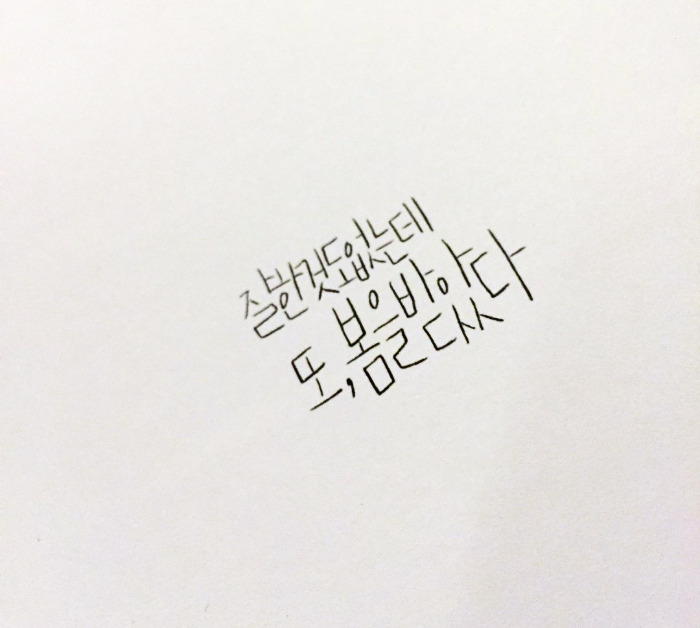 잘한것도없는데
또, 봄을받았다